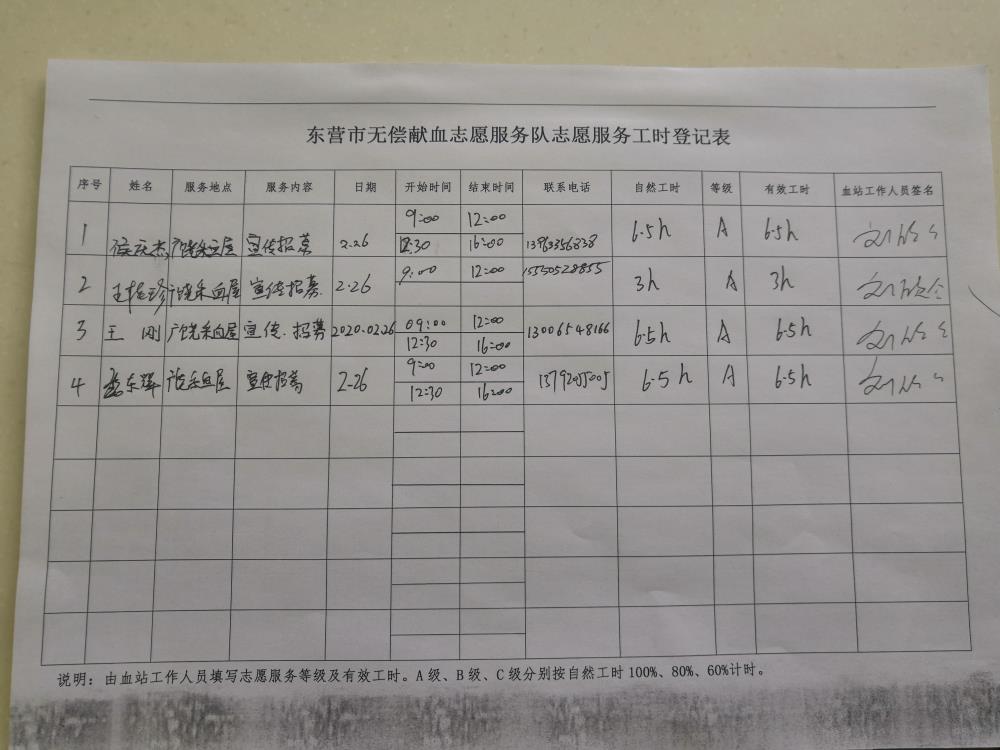 东营市无偿献血志愿服务队志愿服务工时登记表
序号 姓名 服务地点 服务内容 日期 开始时间 结束时间 联系电话 自然工时 等级 有效工时 血站工作人员签名
9:00 12:00
1 广饶采血屋 宣传招募 2.26 6.5h A 6.5h
12:30 16:00
9:00 12:00 15550528855
2 广饶采血屋 宣传招募 2.26 3h A 3h
09:00 12:00
3 王刚 广饶采血屋 宣传.招募 2020.02.26 13006548166 6.5h A 6.5h
12:30 16:00
9:00 12:00
4 采血屋 宣传招募 2-26 6.5h A 6.5h
12:30 16:00
说明：由血站工作人员填写志愿服务等级及有效工时。A级、B级、C级分别按自然工时100%、80%、60%计时。